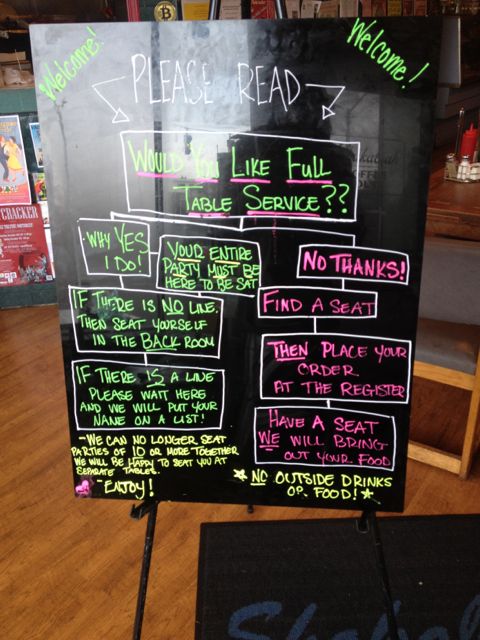 Welcome!
Welcome!
PLEASE READ
WOULD YOU LIKE FULL
TABLE SERVICE??
WHY YES
I DO!
YOUR ENTIRE
PARTY MUST BE
HERE TO BE SAT
NO THANKS!
IF THERE IS NO LINE,
THEN SEAT YOURSELF
IN THE BACK ROOM
FIND A SEAT
THEN PLACE YOUR
ORDER
AT THE REGISTER
IF THERE IS A LINE
PLEASE WAIT HERE
AND WE WILL PUT YOUR
NAME ON A LIST!
HAVE A SEAT
WE WILL BRING
OUT YOUR FOOD
~WE CAN NO LONGER SEAT
PARTIES OF 10 OR MORE TOGETHER
WE WILL BE HAPPY TO SEAT YOU AT
SEPARATE TABLES.
~ENJOY!
NO OUTSIDE DRINKS
OR FOOD!
CRACKER